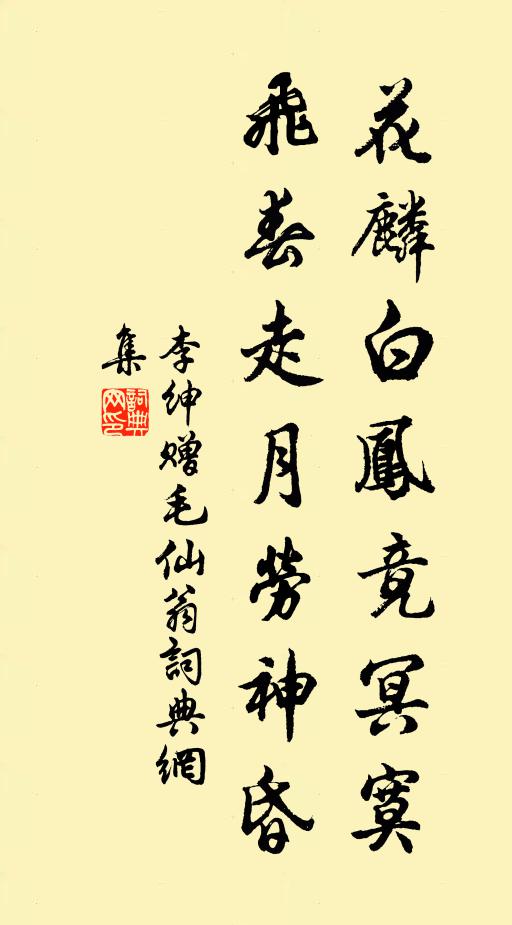 花麟白鳳竟冥寞
飛春走月勞神昏
李紳贈毛仙翁詞典網
集
詞典
网印